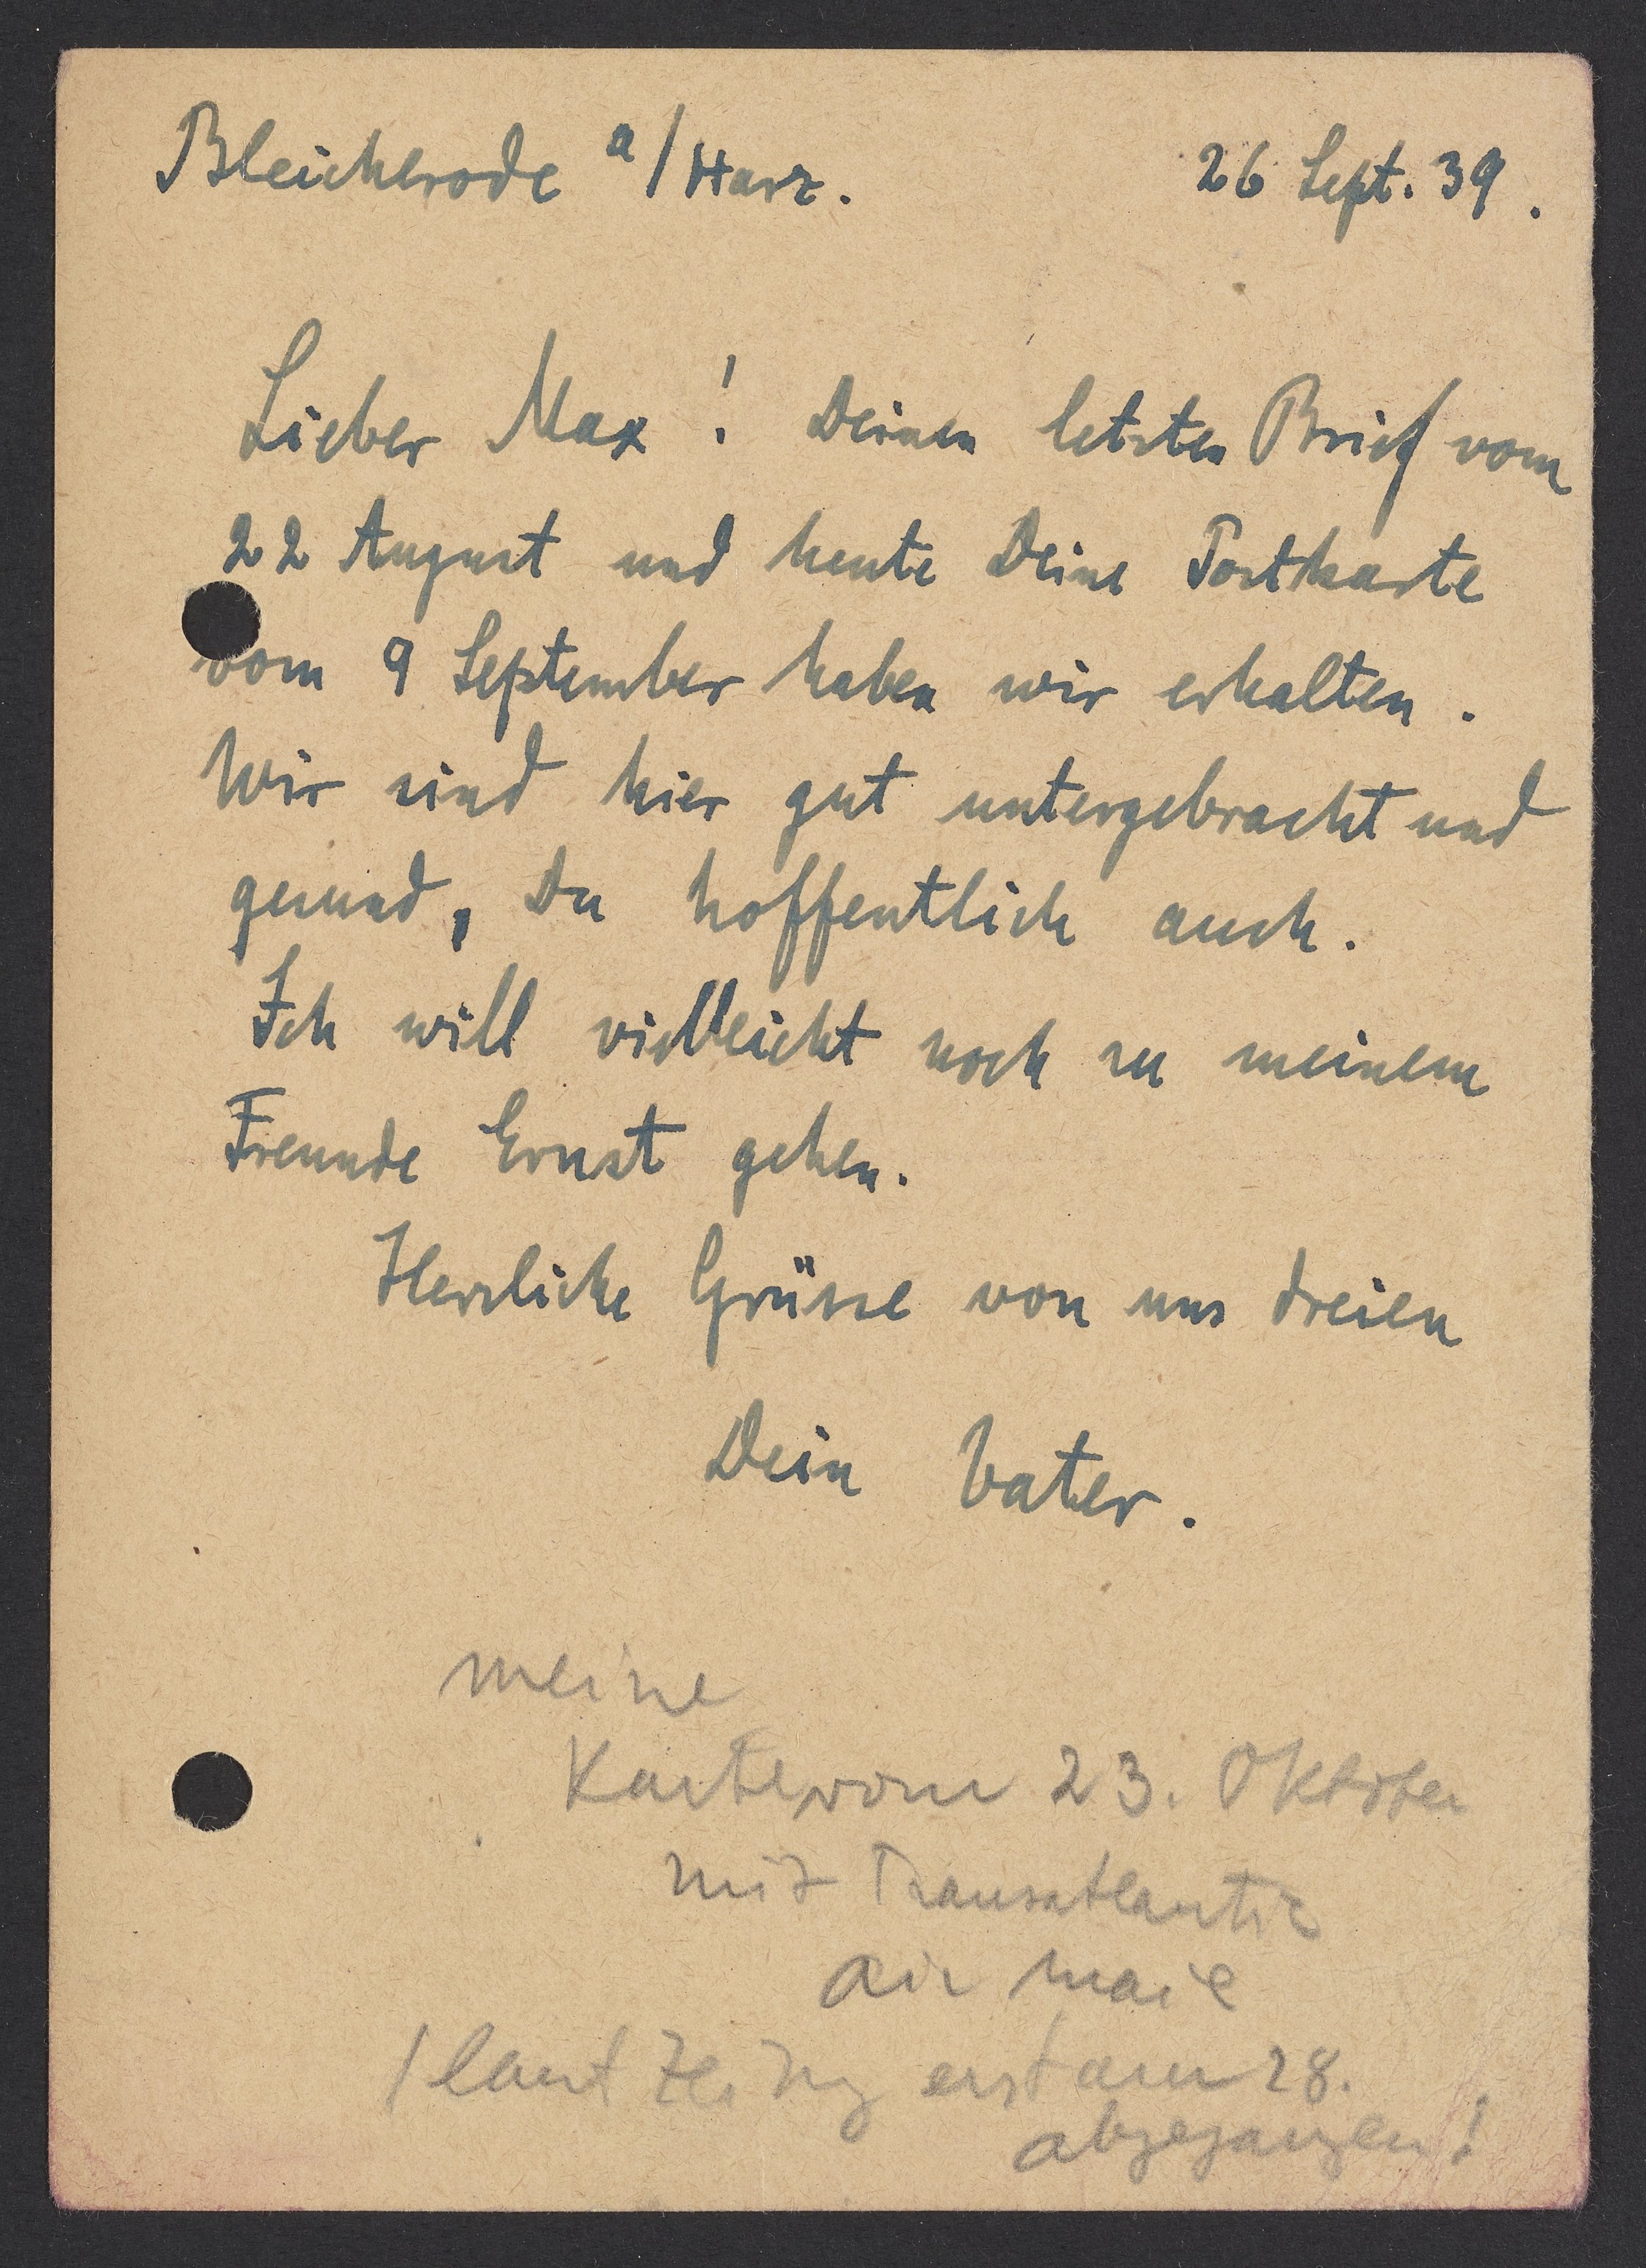 Bleicherode a/Harz. 26 Sept. 39.
Lieber Max! Deinen letzten Brief vom
22 August und heute Deine Postkarte
vom 9 September haben wir erhalten.
Wir sind hier gut untergebracht und
gesund, Du hoffentlich auch.
Ich will vielleicht noch zu meinem
Freunde Ernst gehen.
Herzliche Grüsse von uns dreien
Dein Vater.
meine
Karte vom 23. Oktober
mit Transatlantic
air mail
/laut Zeitung erst am 28.
abgegangen!